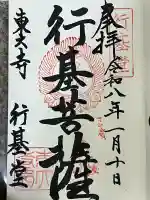 奉拝
令和八年一月十日
行基菩薩
東大寺
行基堂